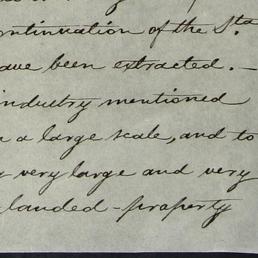 ontinuation of the Sta
ave been extracted. —
industry mentioned
a large scale, and to
very large and very
landed-property